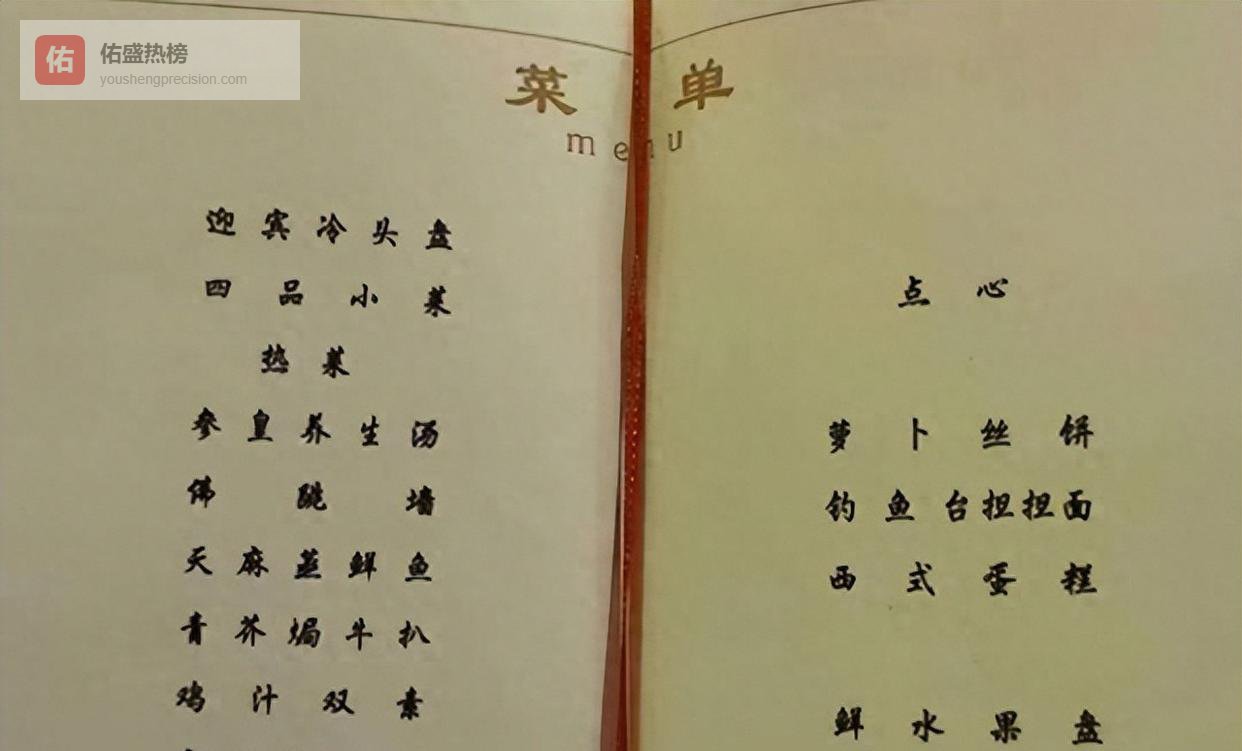 佑
佑盛热榜
youshengprecision.com
菜单
menu
迎宾冷头盘
四品小菜
热菜
参皇养生汤
佛跳墙
天麻蒸鲜鱼
青芥焗牛扒
鸡汁双素
点心
萝卜丝饼
钓鱼台担担面
西式蛋糕
鲜水果盘